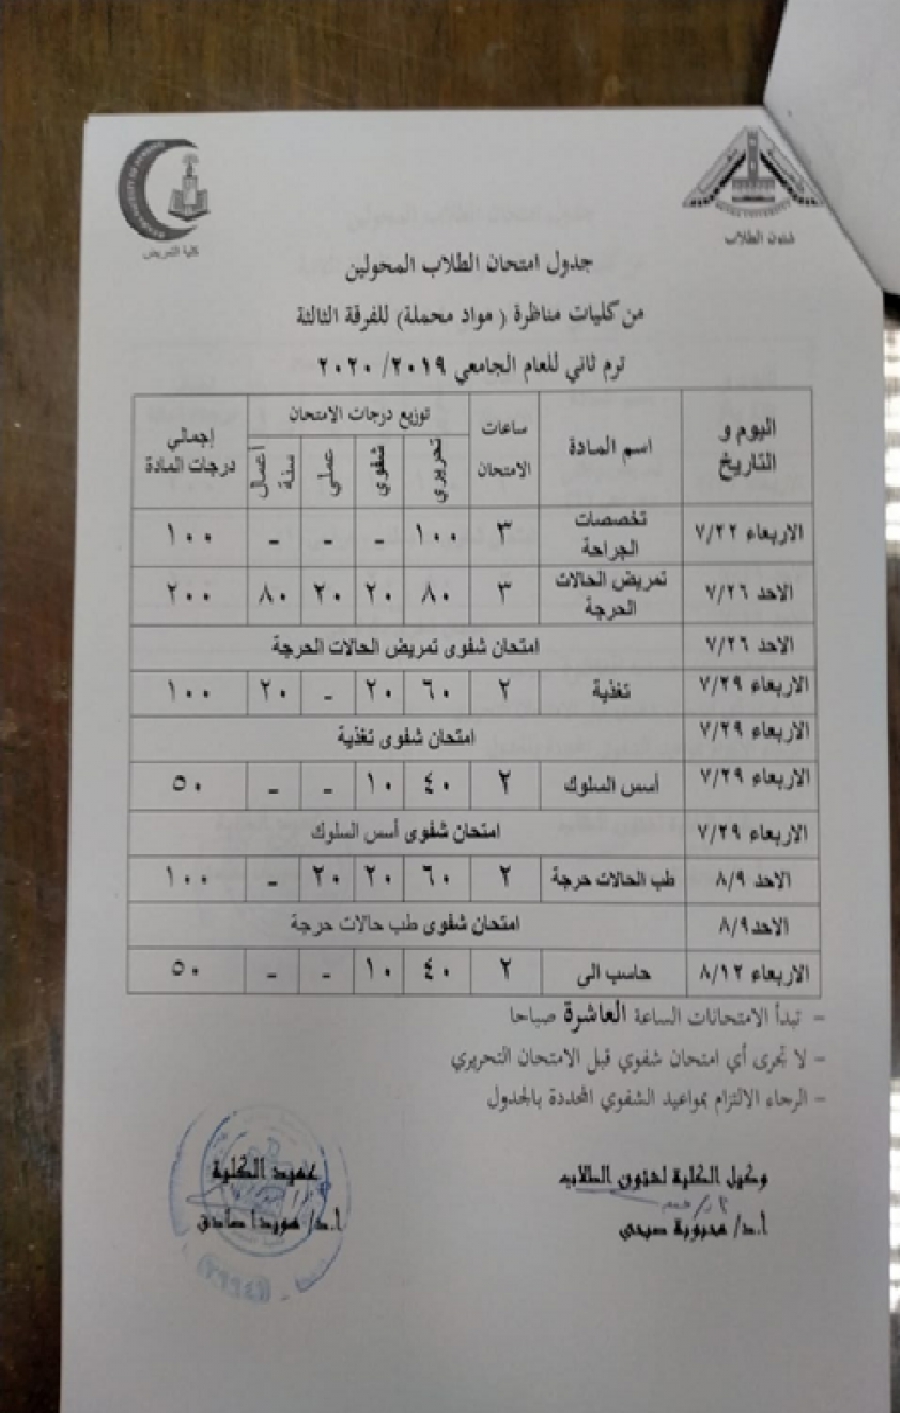 كلية التمريض
شئون الطلاب
جدول امتحان الطلاب المحولين
من كليات مناظرة ( مواد محملة) للفرقة الثالثة
ترم ثاني للعام الجامعي ٢٠١٩/ ٢٠٢٠
اليوم و التاريخ | اسم المادة | ساعات الامتحان | توزيع درجات الامتحان | إجمالي درجات المادة
تحريري | شفوي | عملي | أعمال سنة
الاربعاء ٧/٢٢ | تخصصات الجراحة | ٣ | ١٠٠ | - | - | - | ١٠٠
الاحد ٧/٢٦ | تمريض الحالات الحرجة | ٣ | ٨٠ | ٢٠ | ٢٠ | ٨٠ | ٢٠٠
الاحد ٧/٢٦ | امتحان شفوى تمريض الحالات الحرجة
الاربعاء ٧/٢٩ | تغذية | ٢ | ٦٠ | ٢٠ | - | ٢٠ | ١٠٠
الاربعاء ٧/٢٩ | امتحان شفوى تغذية
الاربعاء ٧/٢٩ | أسس السلوك | ٢ | ٤٠ | ١٠ | - | - | ٥٠
الاربعاء ٧/٢٩ | امتحان شفوى أسس السلوك
الاحد ٨/٩ | طب الحالات حرجة | ٢ | ٦٠ | ٢٠ | ٢٠ | - | ١٠٠
الاحد ٨/٩ | امتحان شفوى طب حالات حرجة
الاربعاء ٨/١٢ | حاسب الى | ٢ | ٤٠ | ١٠ | - | - | ٥٠
- تبدأ الامتحانات الساعة العاشرة صباحا
- لا تجرى أي امتحان شفوي قبل الامتحان التحريري
- الرجاء الالتزام بمواعيد الشفوي المحددة بالجدول
وكيل الكلية لشئون الطلاب
أ.د/ محبوبة صبحي
عميد الكلية
أ.د/ هويدا صادق